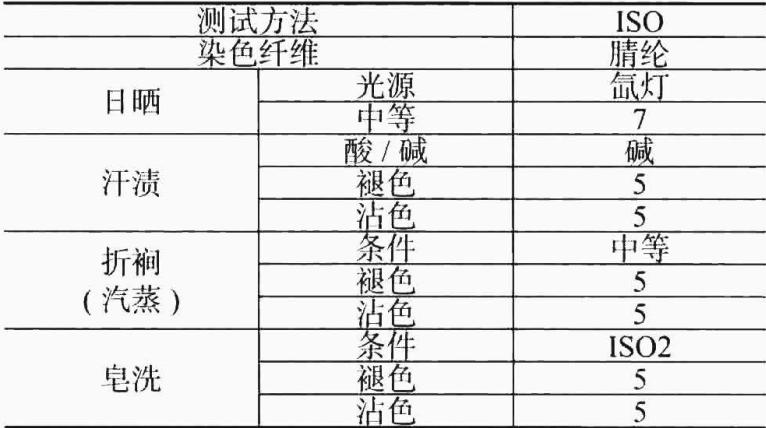 测试方法 ISO
染色纤维 腈纶
日晒 光源 氙灯
中等 7
汗渍 酸 / 碱 碱
褪色 5
沾色 5
折裥 ( 汽蒸 ) 条件 中等
褪色 5
沾色 5
皂洗 条件 ISO2
褪色 5
沾色 5